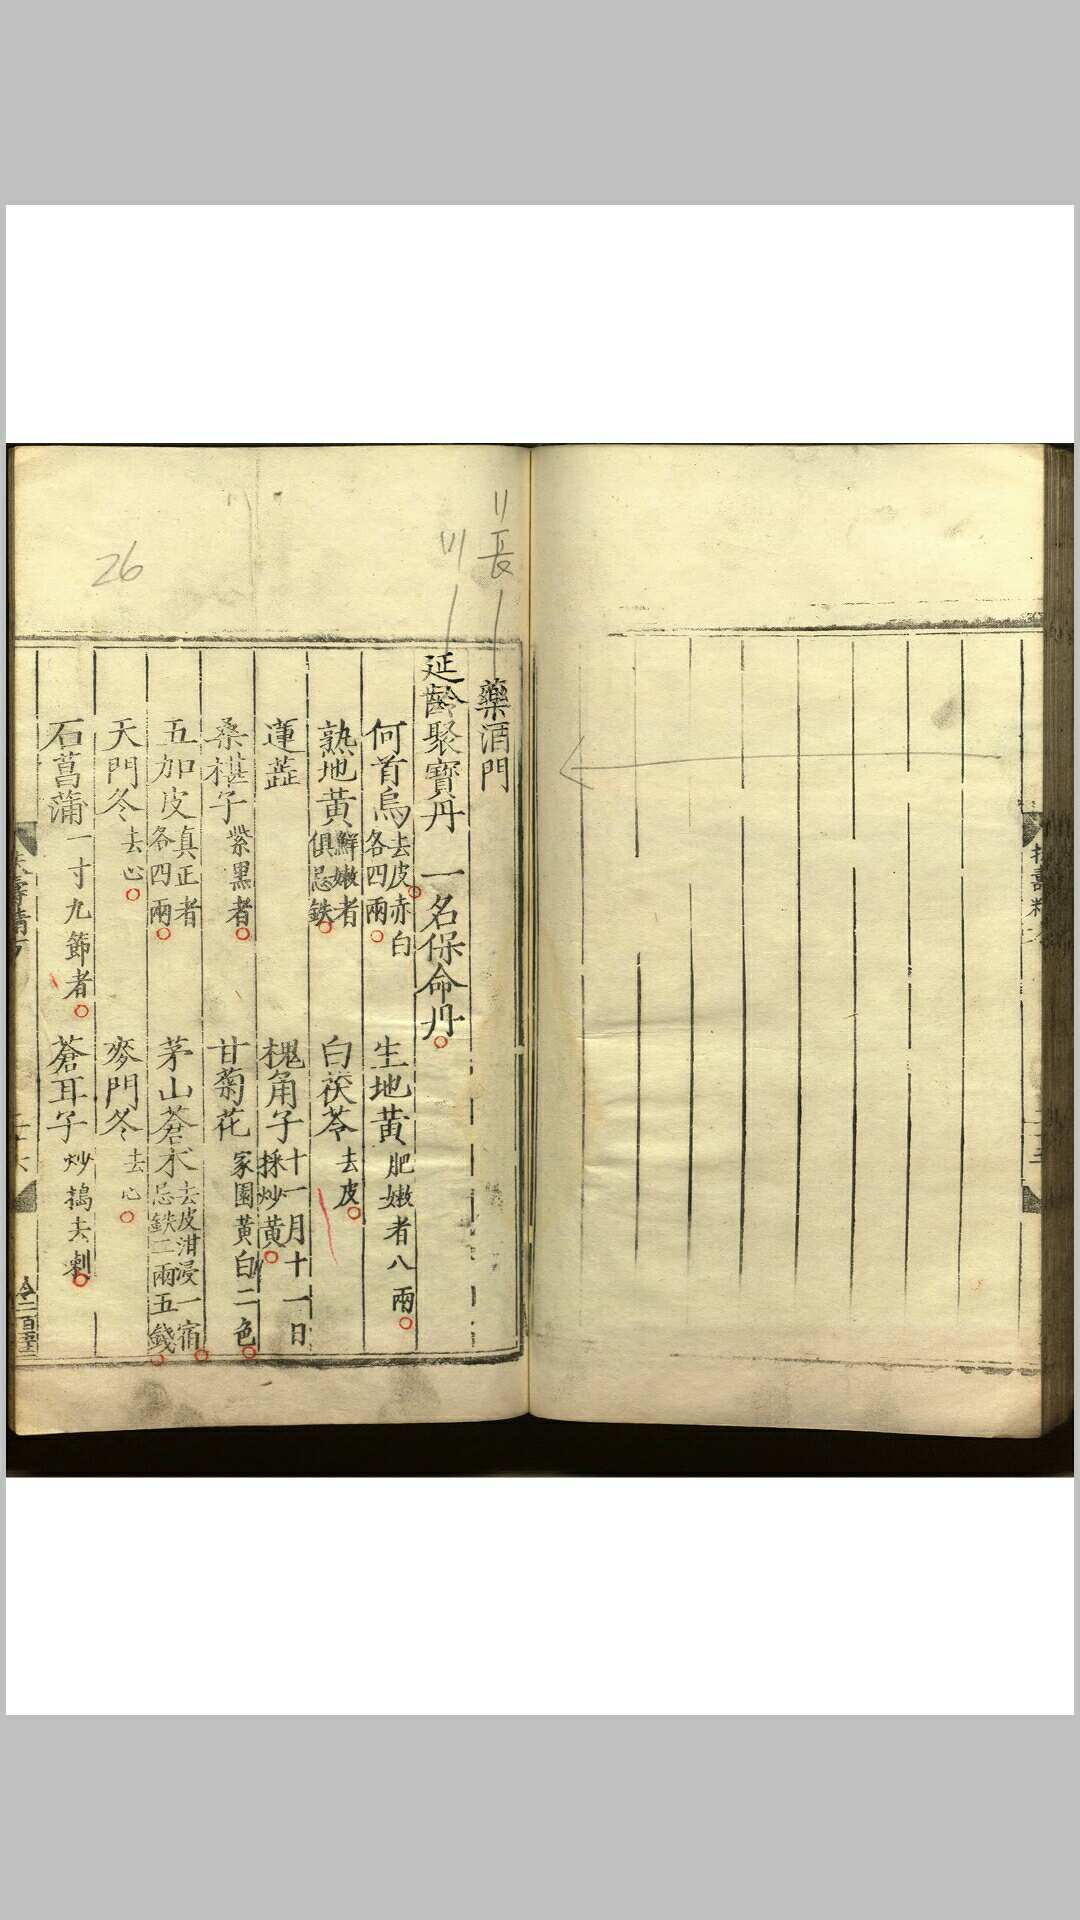 藥酒門
延齡聚寶丹 一名保命丹
何首烏 去皮赤白各四兩 生地黄 肥嫩者八兩
熟地黄 鮮嫩者俱忌鉄 白茯苓 去皮
蓮蕋 槐角子 十一月十一日採炒黄
桑椹子 紫黑者 甘菊花 家園黄白二色
五加皮 真正者各四兩 茅山蒼朮 去皮泔浸一宿忌鉄二兩五錢
天門冬 去心 麥門冬 去心
石菖蒲 一寸九節者 蒼耳子 炒搗去刺
26
長